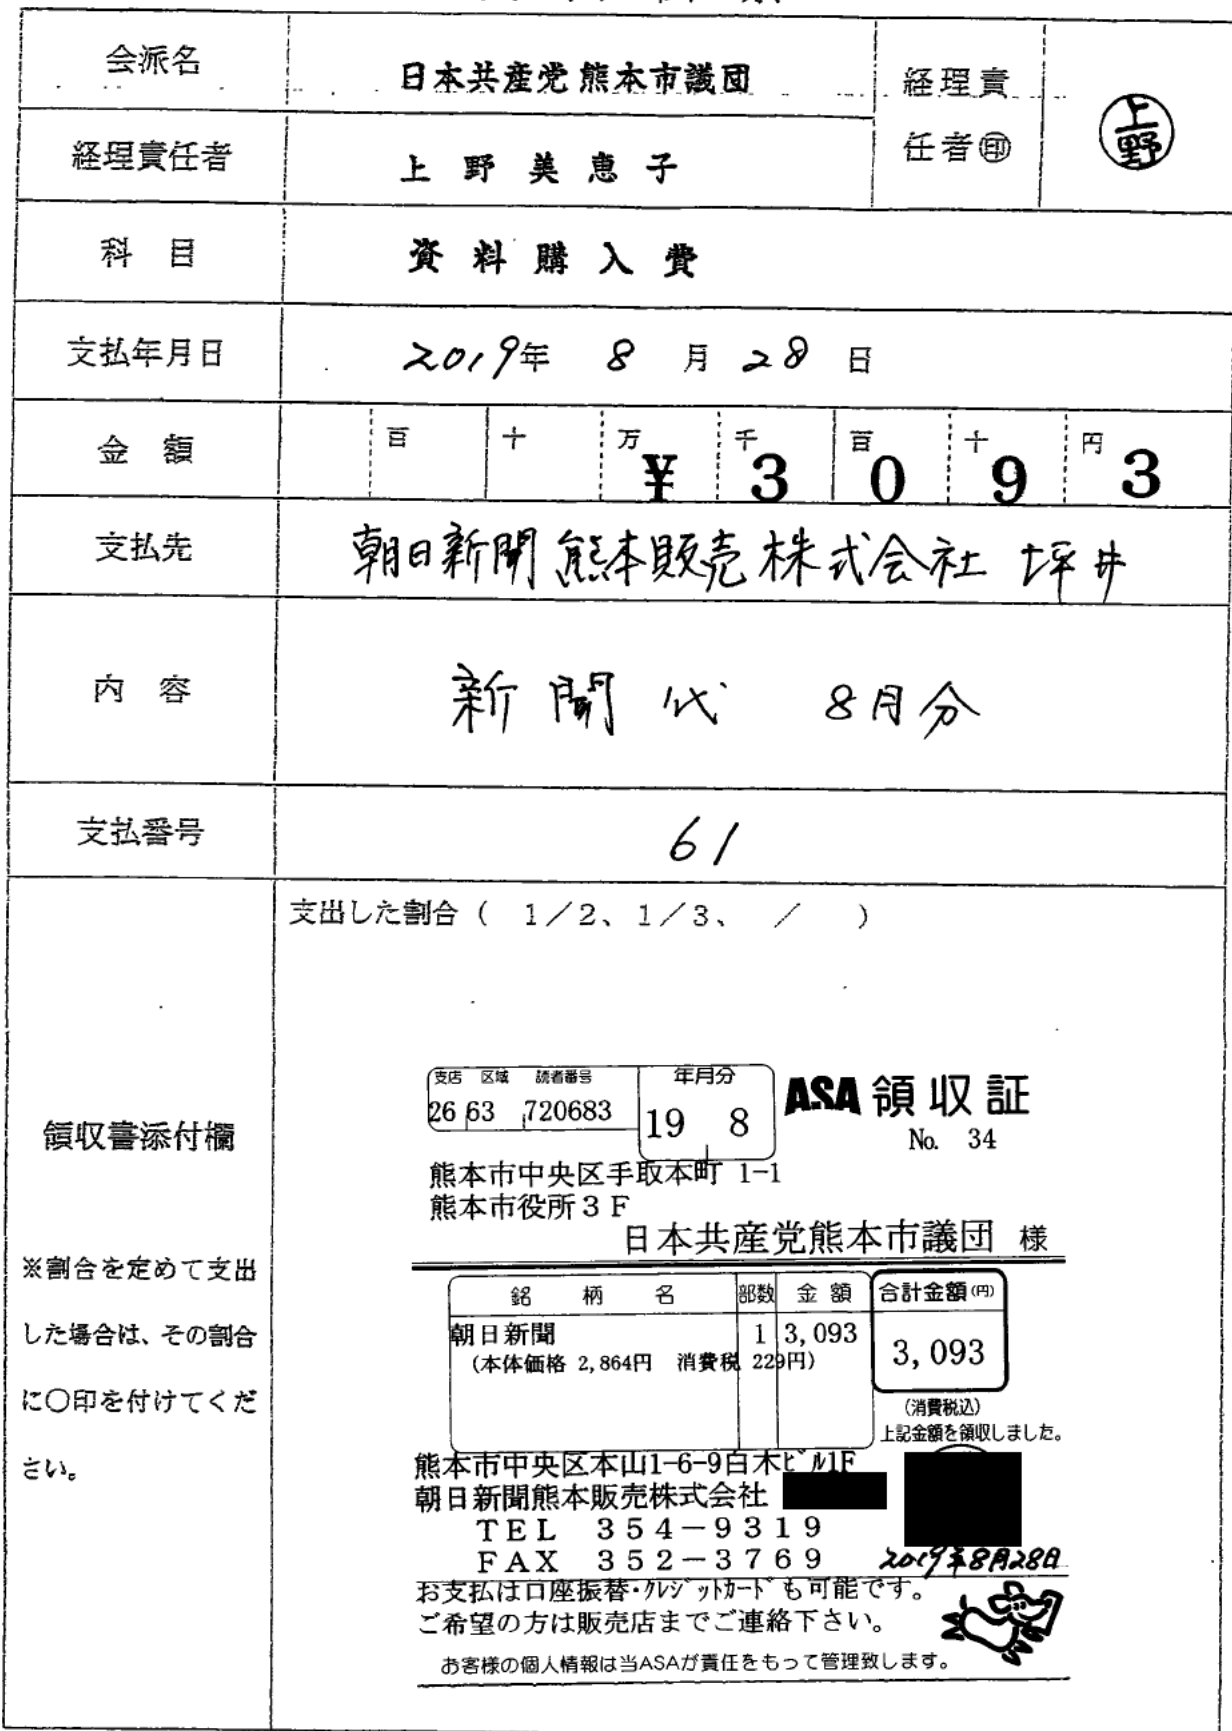 会派名 日本共産党熊本市議団 経理責任者㊞ 上野
経理責任者 上野美恵子
科目 資料購入費
支払年月日 2019年 8月28日
金額 百 十 万 千 百 十 円
¥3093
支払先 朝日新聞熊本販売株式会社 坪井
内容 新聞代 8月分
支払番号 61
支出した割合( 1/2、1/3、 / )
領収書添付欄
※割合を定めて支出
した場合は、その割合
に〇印を付けてくだ
さい。
支店 区域 読者番号 年月分
26 63 720683 19 8
ASA 領収証
No. 34
熊本市中央区手取本町 1-1
熊本市役所3F
日本共産党熊本市議団 様
銘柄名 部数 金額 合計金額(円)
朝日新聞 1 3,093 3,093
(本体価格 2,864円 消費税 229円)
(消費税込)
上記金額を領収しました。
熊本市中央区本山1-6-9白木ビル1F
朝日新聞熊本販売株式会社
TEL 354-9319
FAX 352-3769 2019年8月28日
お支払は口座振替・クレジットカードも可能です。
ご希望の方は販売店までご連絡下さい。
お客様の個人情報は当ASAが責任をもって管理致します。